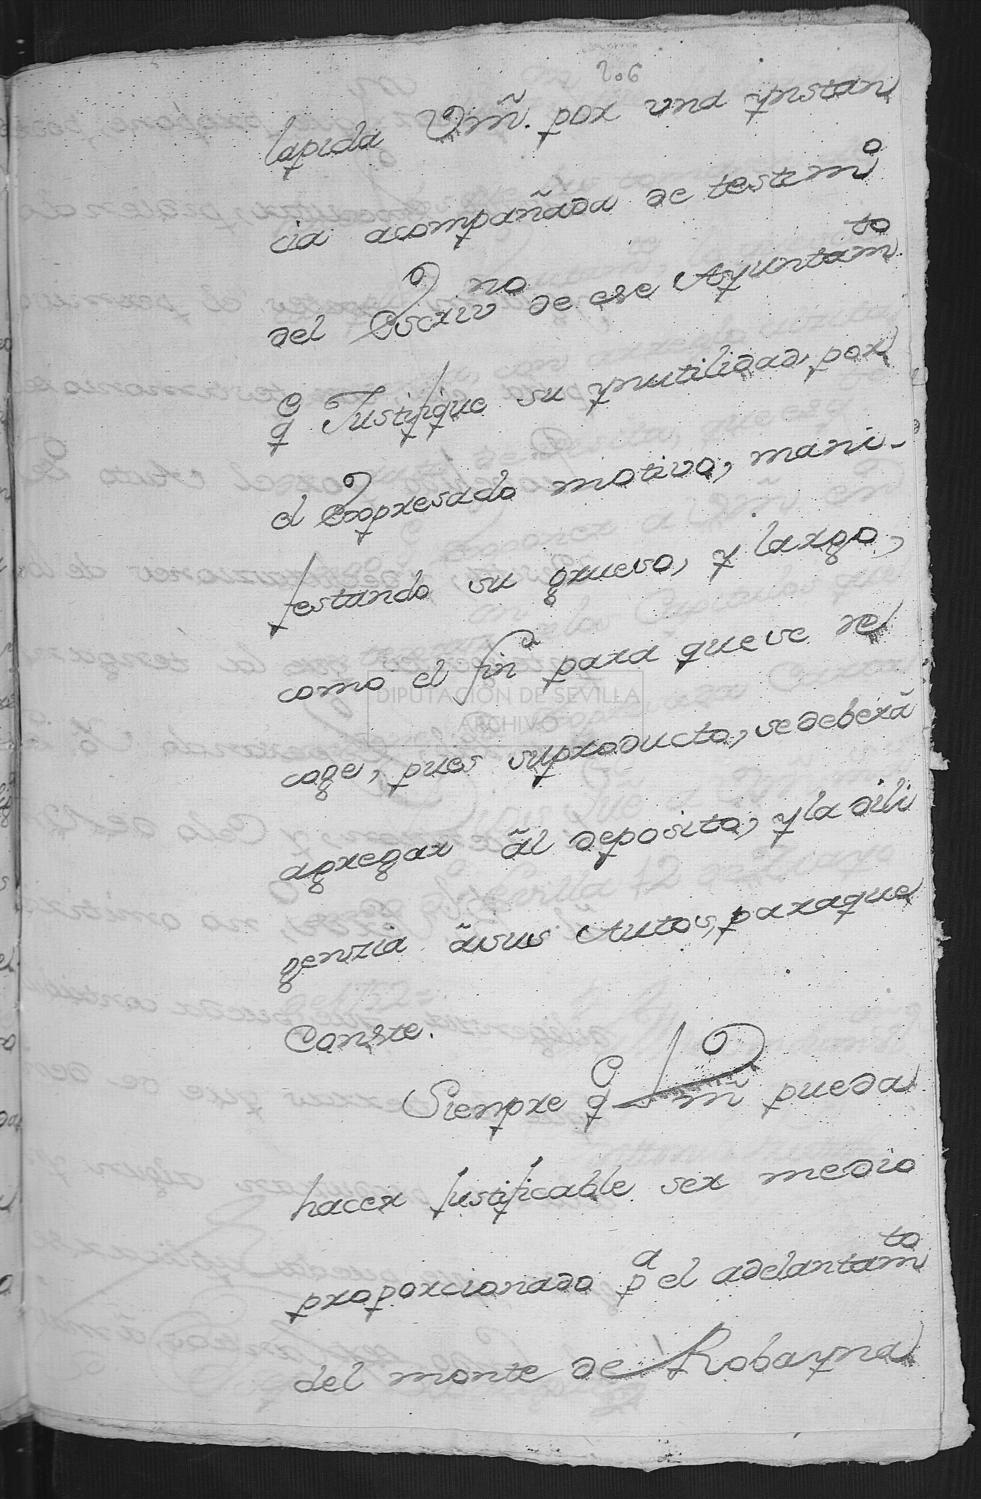 206
lapida Vmñ. por una ynstan
cia acompañada de testimo
del Escrivno de ese Ayuntamto
q Justifique su ynutilidad por
el Expresado motivo, mani-
festando su grueso, y largo,
como el fin para que se re
coge, pues suproducto, sedeberá
agregar ál deposito, yla dili
genzia ásus Autos, paraque
Conste.
Siempre q Vmñ pueda
hacer justificable ser medio
proporcionado pa el adelantamto
del monte de Robayna
DIPUTACIÓN DE SEVILLA
ARCHIVO